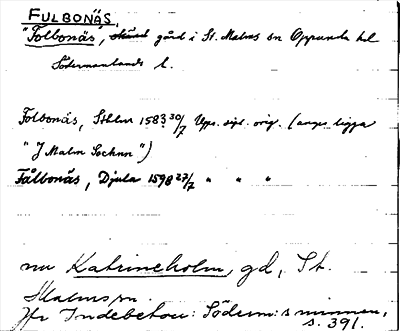 FULBONÄS.
"Folbonäs", gård i St. Malms sn Oppunda hd
Södermanlands l.
Folbonäs, Sthlm 1583 30/7 Upps. sigl. orig. (anges ligga
"J Malm Sochnn")
Fålbonäs, Djula 1598 27/2 " " "
nu Katrineholm, gd, St.
Malms sn.
Jfr Indebetou: Söderm:s minnen,
s. 391.